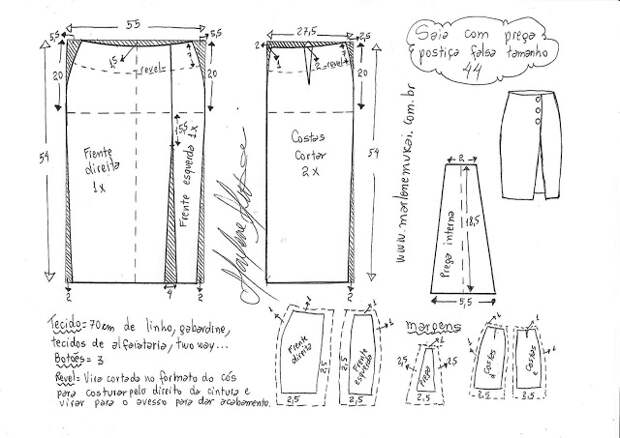 Saia com prega
postiça falsa tamanho
44
55
5,5
5,5
54
20
20
15
revel=
7
15,5
Frente
direita
1x
Frente esquerda 1x
2
4
2
27,5
2,5
2
1
2
revel=
7
20
54
Costas
cortar
2x
2
www.marlenemukai.com.br
2
18,5
Prega interna
5,5
Tecido= 70cm de linho, gabardine,
tecidos de alfaiataria, two way...
Botões= 3
Revel= Vira cortada no formato do cós
para costurar pelo direito da cintura e
virar para o avesso para dar acabamento.
Frente
direita
2,5
2,5
Frente
esquerda
2,5
2,5
margens
1
2,5
Prega
2,5
2,5
1
Costas
d
2,5
1
Costas
e
2,5